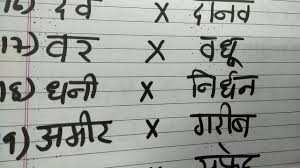 १६) देव x दानव
१७) वर x वधू
१८) धनी x निर्धन
१९) अमीर x गरीब